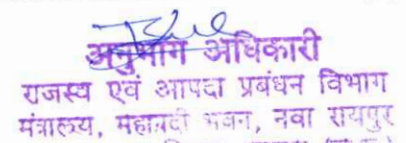 अनुभाग अधिकारी
राजस्व एवं आपदा प्रबंधन विभाग
मंत्रालय, महानदी भवन, नवा रायपुर